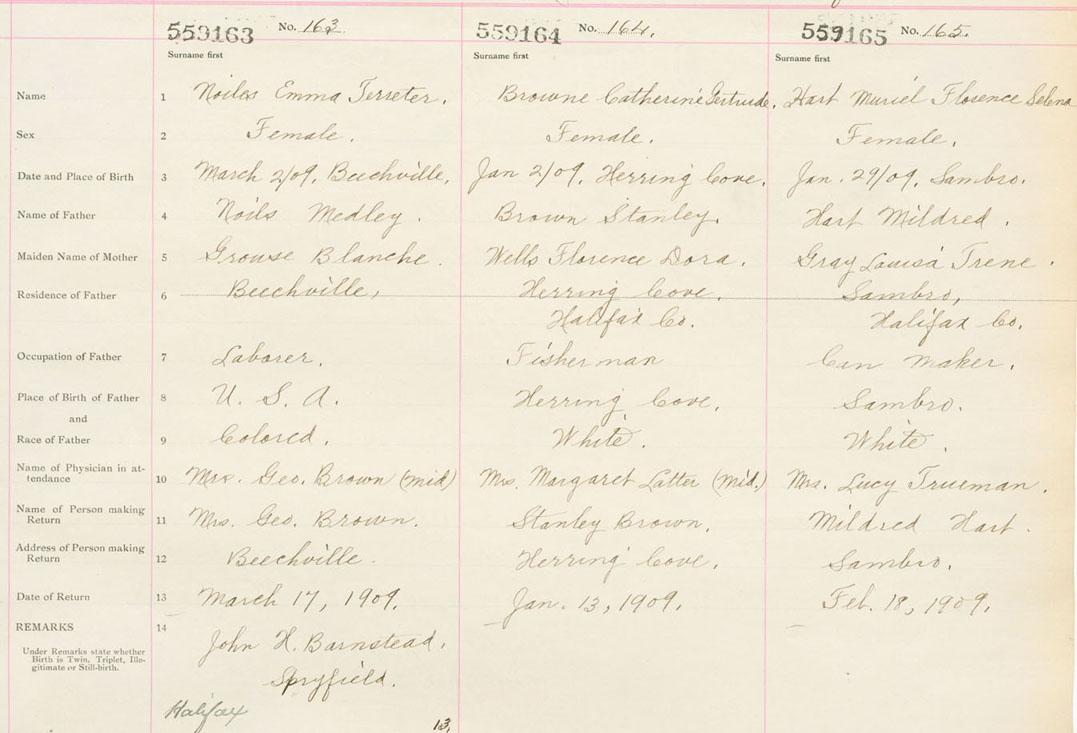 559163 No. 163 559164 No. 164. 559165 No. 165.
Surname first Surname first Surname first
Name 1 Noiles Emma Terreter. Browne Catherine Gertrude. Hart Muriel Florence Selena
Sex 2 Female. Female. Female.
Date and Place of Birth 3 March 2/09. Beechville. Jan 2/09. Herring Cove. Jan. 29/09. Sambro.
Name of Father 4 Noils Medley. Brown Stanley. Hart Mildred.
Maiden Name of Mother 5 Grouse Blanche. Wells Florence Dora. Gray Louisa Irene.
Residence of Father 6 Beechville, Herring Cove. Sambro,
Halifax Co. Halifax Co.
Occupation of Father 7 Laborer. Fisherman Can maker.
Place of Birth of Father 8 U. S. A. Herring Cove. Sambro.
and
Race of Father 9 Colored. White. White.
Name of Physician in at-
tendance 10 Mrs. Geo. Brown (mid) Mrs. Margaret Latter (mid.) Mrs. Lucy Trueman.
Name of Person making
Return 11 Mrs. Geo. Brown. Stanley Brown. Mildred Hart.
Address of Person making
Return 12 Beechville. Herring Cove. Sambro.
Date of Return 13 March 17, 1909. Jan. 13, 1909. Feb. 18, 1909.
REMARKS 14
Under Remarks state whether
Birth is Twin, Triplet, Ille-
gitimate or Still-birth.
John H. Barnstead.
Spryfield.
Halifax 13.